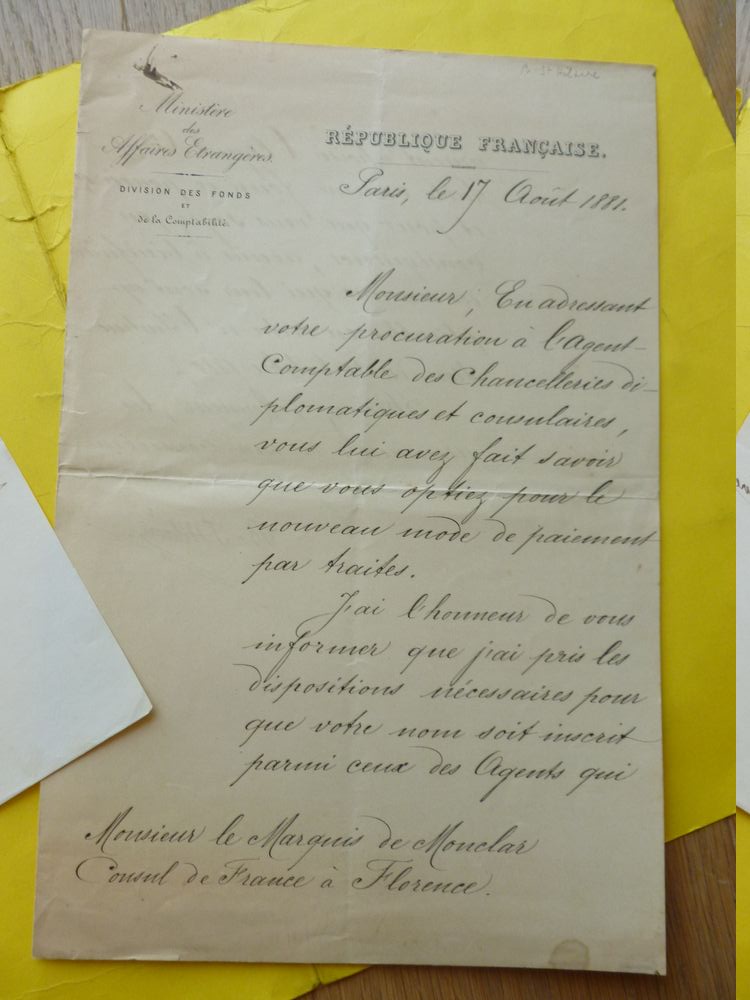 Ministère
des
Affaires Etrangères.
DIVISION DES FONDS
ET
de la Comptabilité.
RÉPUBLIQUE FRANÇAISE.
Paris, le 17 Août 1881.
Monsieur, En adressant
votre procuration à l'Agent-
Comptable des Chancelleries di-
plomatiques et consulaires,
vous lui avez fait savoir
que vous optiez pour le
nouveau mode de paiement
par traites.
J'ai l'honneur de vous
informer que j'ai pris les
dispositions nécessaires pour
que votre nom soit inscrit
parmi ceux des Agents qui
Monsieur le Marquis de Monclar
Consul de France à Florence.